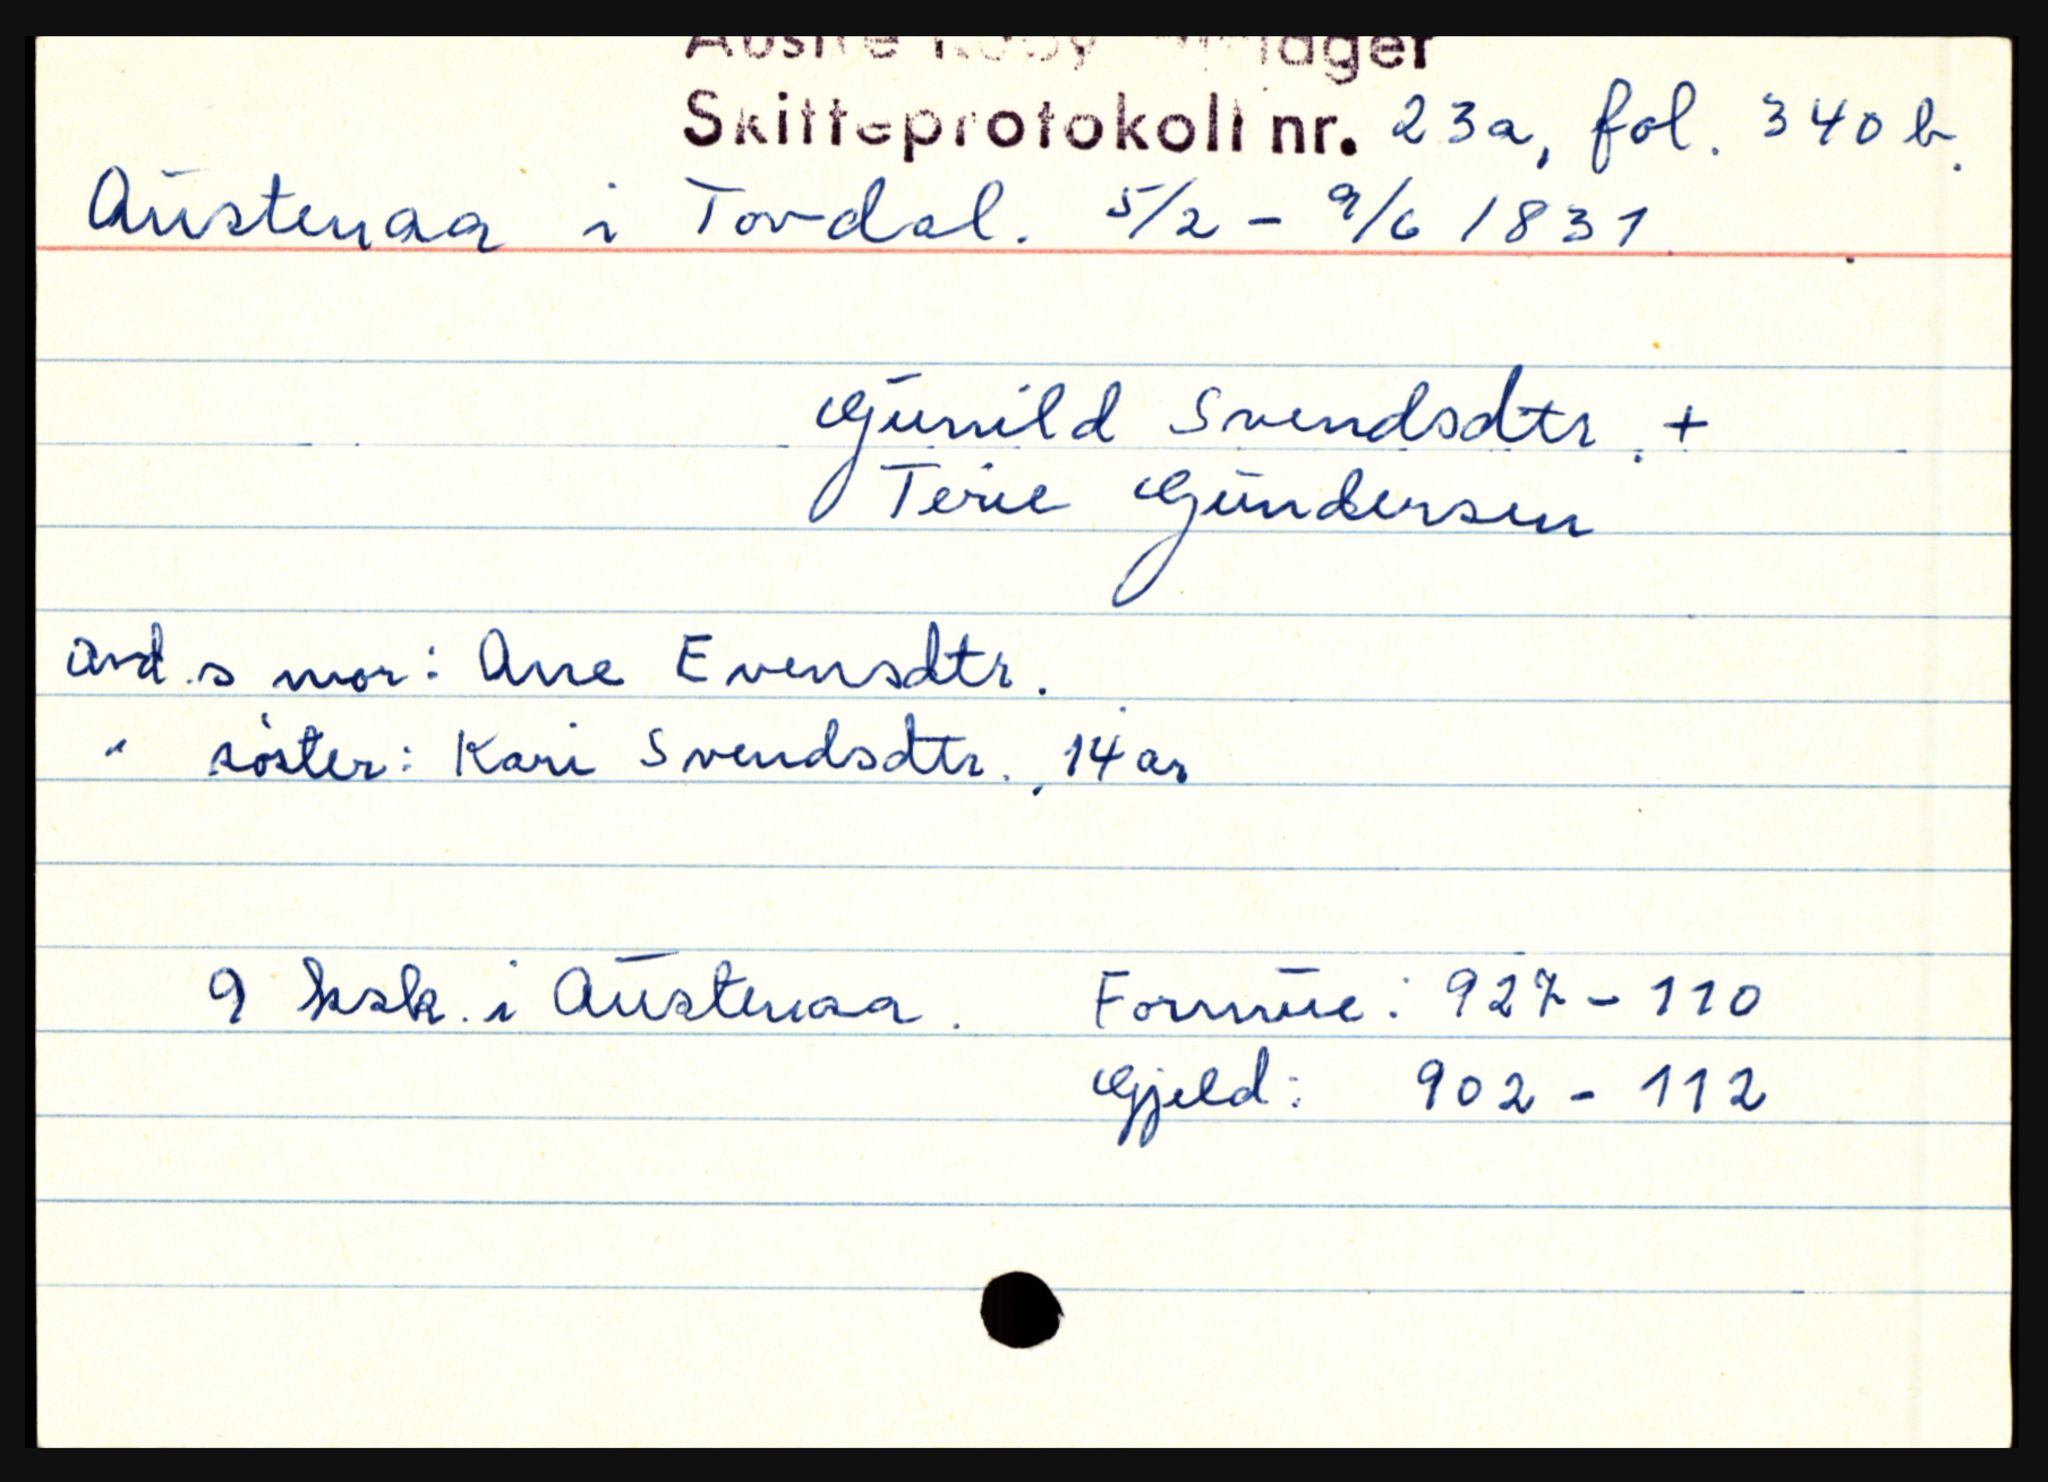 Skifteprotokoll nr. 23a, fol. 340 b.
Austenaa i Tovdal. 5/2 - 9/6 1831
Gunild Svendsdtr. +
Terie Gundersen
avd.s mor: Ane Evensdtr.
" söster: Kari Svendsdtr. 14 år
9 ksk. i Austenaa. Formue: 927 - 110
Gjeld: 902 - 112